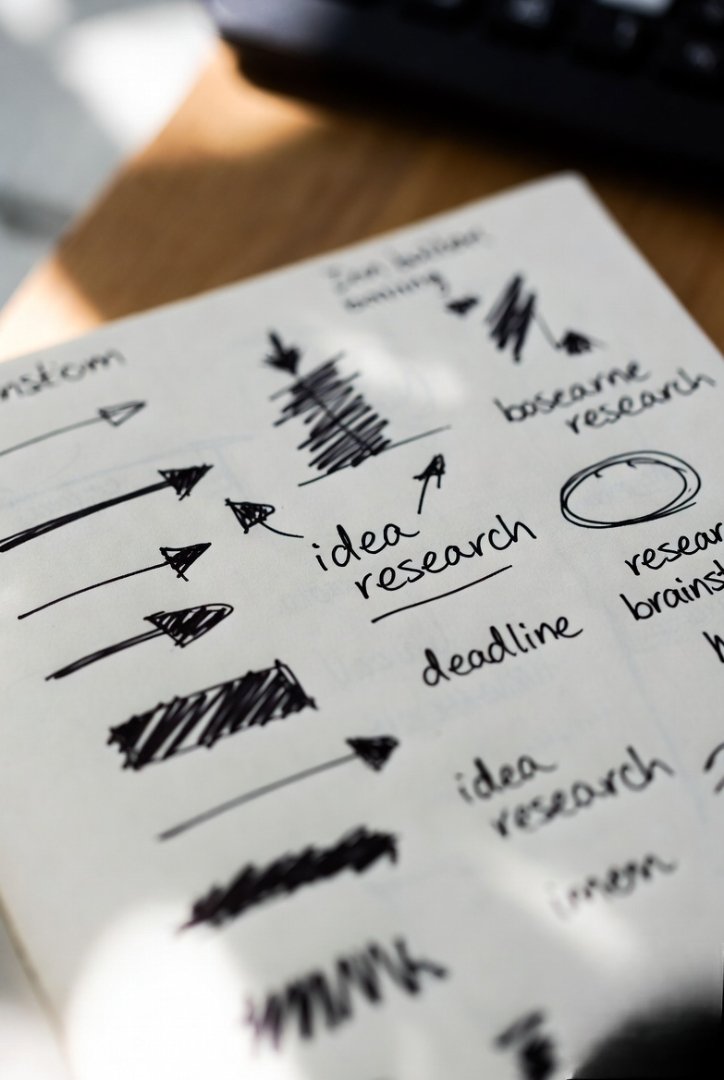 nstorn
basearne
research
idea
research
resear
brainst
deadline
idea
research